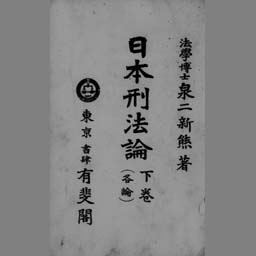 法學博士 泉二新熊著
日本刑法論 下巻
(各論)
東京 書肆 有斐閣